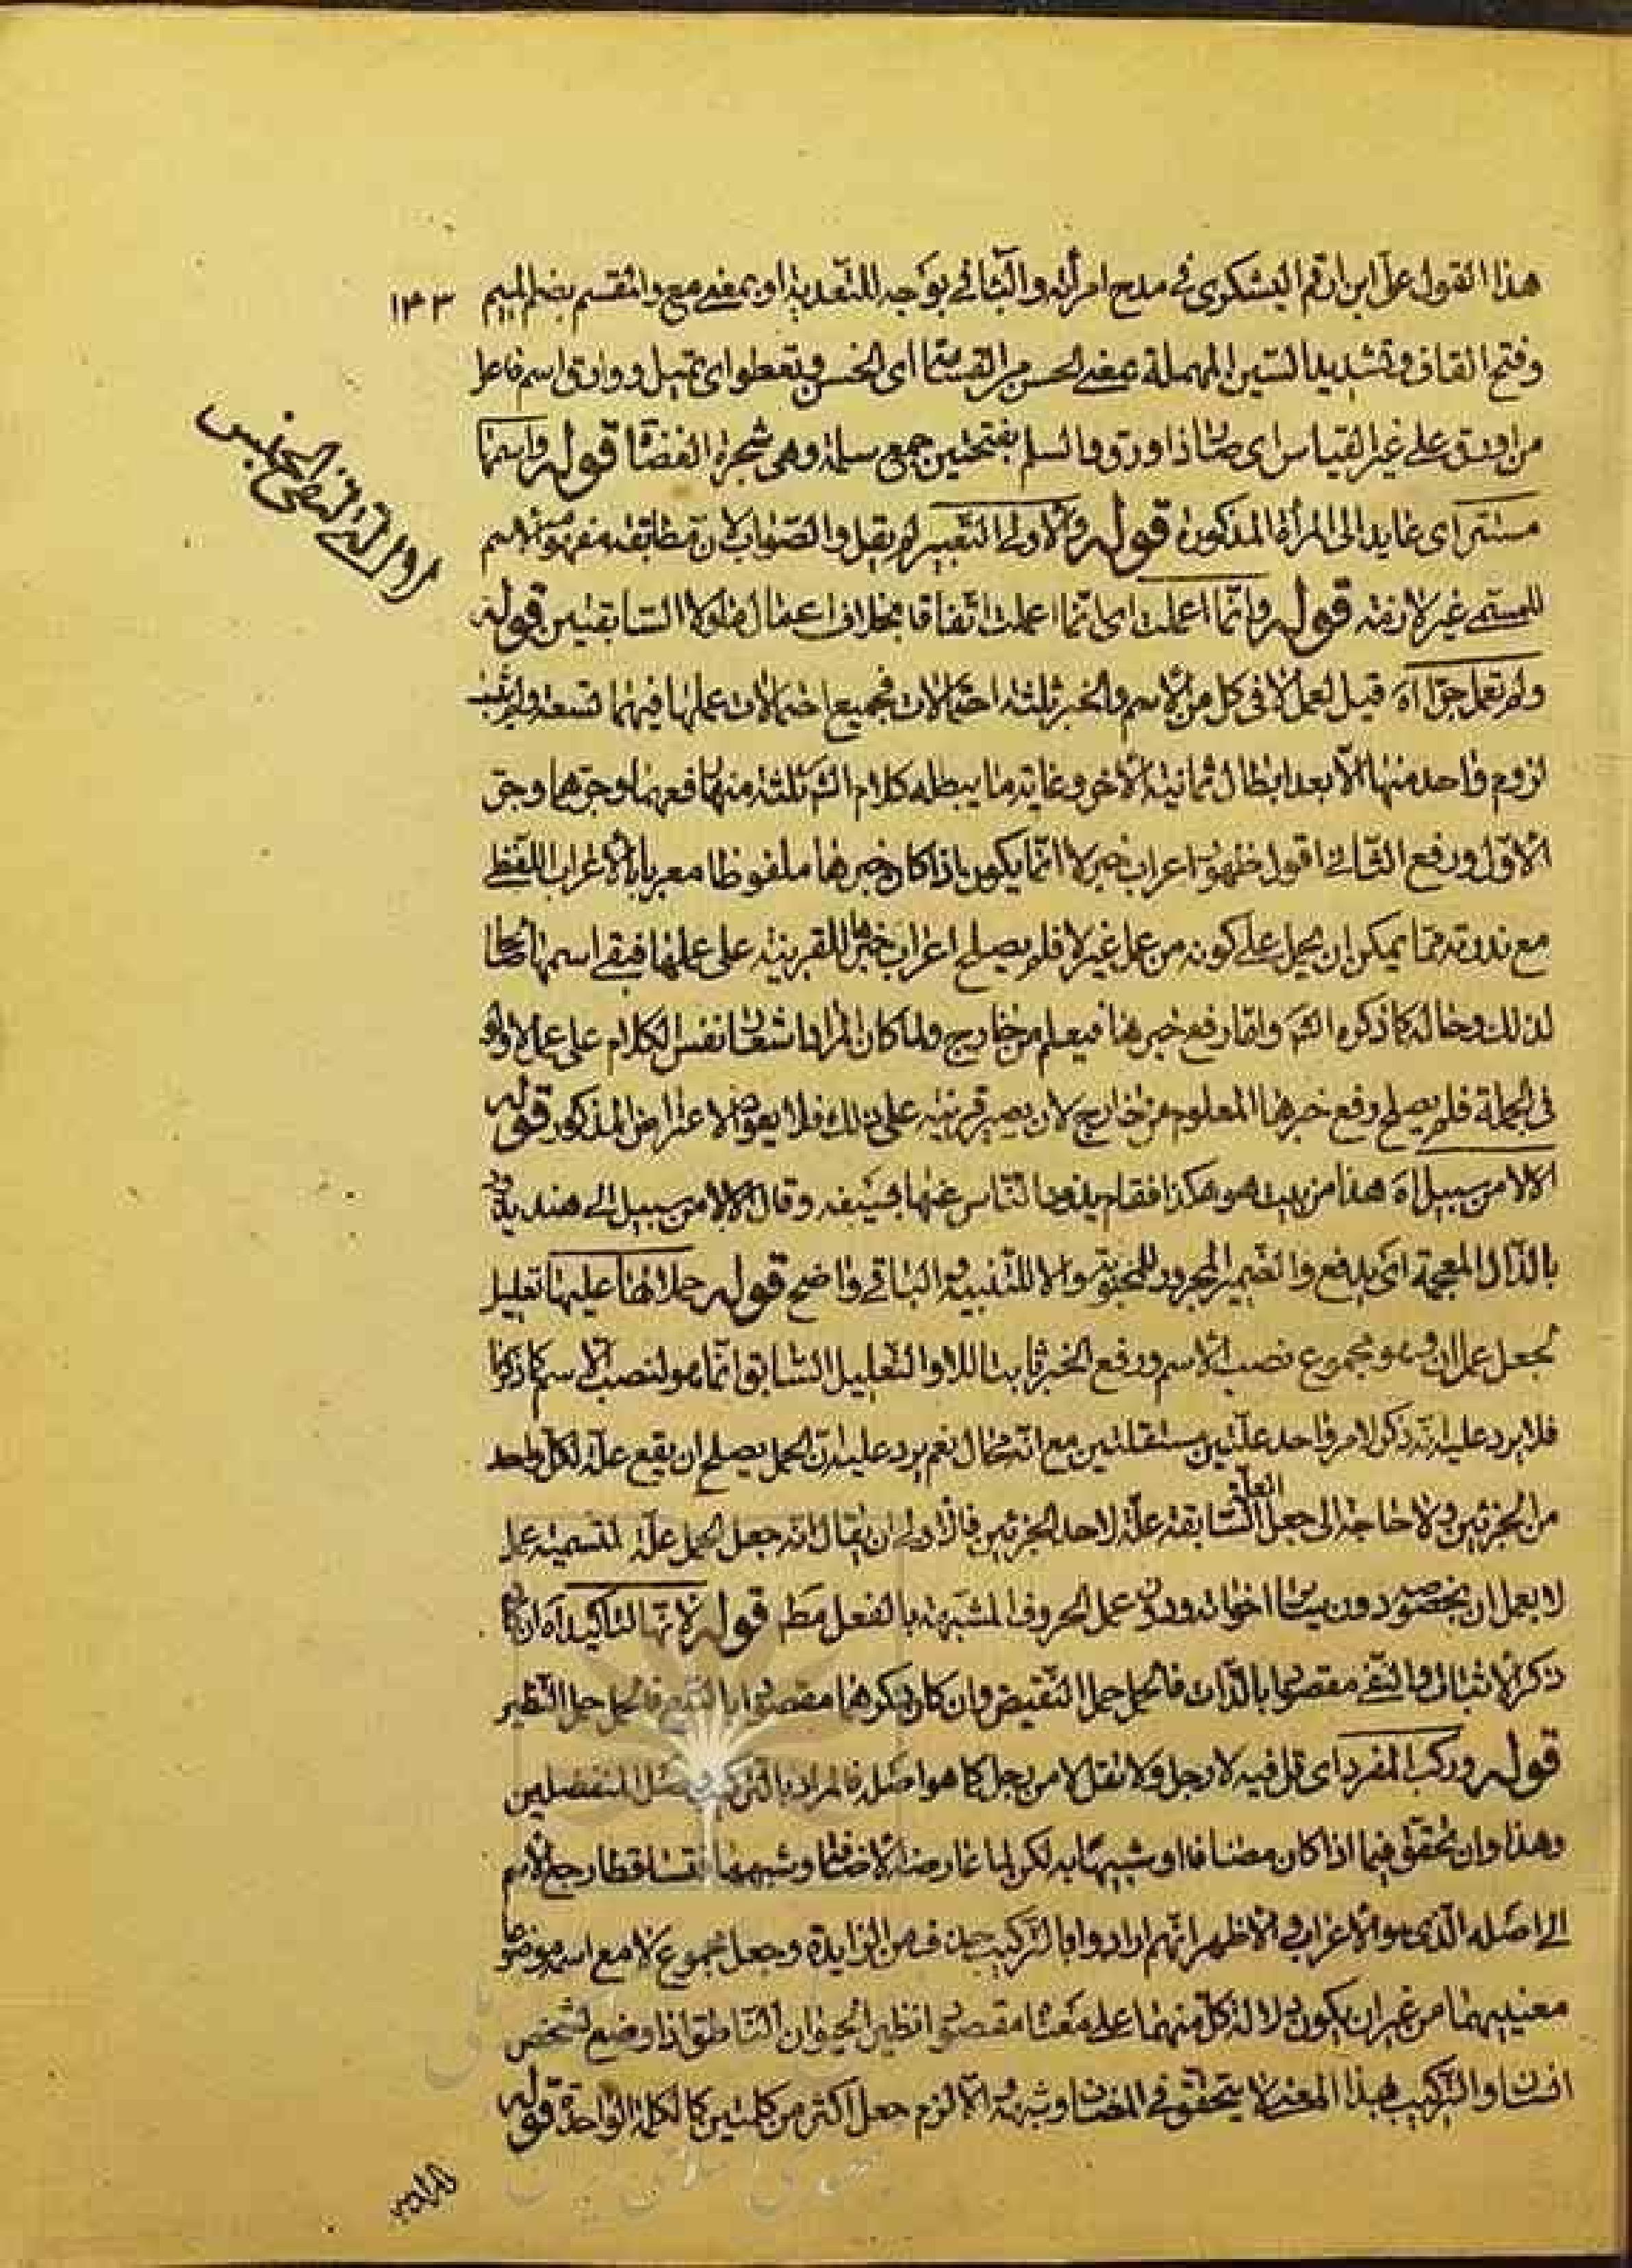 هذا القول على ابن ارقم اليشكرى فى مدح امرأته والباء فى بوجه للتعدية او بمعنى مع والمقسم بضم الميم
١٤٣
وفتح القاف وتشديد السين المهملة بمعنى الحسن من القسام اى الحسن وتعطو اى تميل ووارق اسم فاعل
من اورق على غير القياس اى صار ذا ورق والسلم بفتحتين جمع سلمة وهى شجرة الغضا قوله واسمها
مستتر اى عايد الى المرأة المذكورة قوله والاولى التعبير لم يقل والصواب لان مطابقة مفهوم الاسم
للمسمى غير لازمة قوله وانما اعملت اى انما اعملت اتفاقا بخلاف اعمال ما ولا السابقتين قوله
ولم تعمل جرّا اه قيل لعمل لا فى كل من الاسم والخبر ثلثة احتمالات فجميع احتمالات عملها فيهما تسعة ولم يثبت
لزوم واحد منها الّا بعد ابطال ثمانية الاخر وغاية ما يبطله كلام الش ثلثة منها رفعهما وجرّهما وجرّ
الاول ورفع الثانى اقول ظهور اعراب خبر لا انما يكون اذا كان خبرها ملفوظا معربا بالاعراب اللفظى
مع ندرته مما يمكن ان يحمل على كونه من عمل غير لا فلم يصلح اعراب خبرها للقرينة على عملها فبقى اسمها صالحا
لذلك وحاله كما ذكره الش واما رفع خبرها فيعلم من خارج ولما كان المراد اشعار نفس الكلام على عمل لا ولو
فى الجملة فلم يصلح رفع خبرها المعلوم من خارج لان يصير قرينة على ذلك فلا يعود الاعتراض المذكور قوله
الا لا من سبيل اه هذا من بيت هو هكذا فقام يذود الناس عنها بسيفه وقال الا لا من سبيل الى هند يذود
بالذال المعجمة اى يدفع والضمير المجرور للمحبوبة والا للتنبيه والباقى واضح قوله حملا لها عليها تعليل
لجعل عمل ان وهو مجموع نصب الاسم ورفع الخبر ثابتا للا والتعليل السابق انما هو لنصب الاسم كما ذكرنا
فلا يرد عليه انه ذكر لامر واحد علّتين مستقلتين مع انه محال نعم يرد عليه ان الحمل يصلح ان يقع علة لكل واحد
من الجزئين ولا حاجة الى جعل العلة السابقة علّة لاحد الجزئين فالاولى ان يقال انه جعل الحمل علّة لتسمية عمل
لا بعمل ان بخصوصه دون سائر اخواته ودون عمل الحروف المشبهة بالفعل مط قوله لانها لتاكيد اه ان كان
ذكر الاثبات والنفى مقصودا بالذات فالحمل حمل النقيض وان كان ذكرهما مقصودا بالتبع فالحمل حمل النظير
قوله وركب المفرد اى قل فيه لا رجل ولا تقل لا من رجل كما هو اصله فالمراد بالتركيب وصل المنفصلين
وهذا وان تحقق فيما اذا كان مضافا او شبيها به لكن لما عارضه الاضافة وشبهها تساقطا رجع الاسم
الى اصله الذى هو الاعراب والاظهر انهم ارادوا بالتركيب حذف من الزايدة وجعل مجموع لا مع اسمه موضوعا
معنييهما من غير ان يكون دلالة كل منهما على معناه مقصودا نظير الحيوان الناطق اذا وضع لشخص
انسان والتركيب بهذا المعنى لا يتحقق فى المضاف وشبهه الّا لزم جعل اكثر من كلمتين كالكلمة الواحدة قوله
او لا التى لنفى الجنس